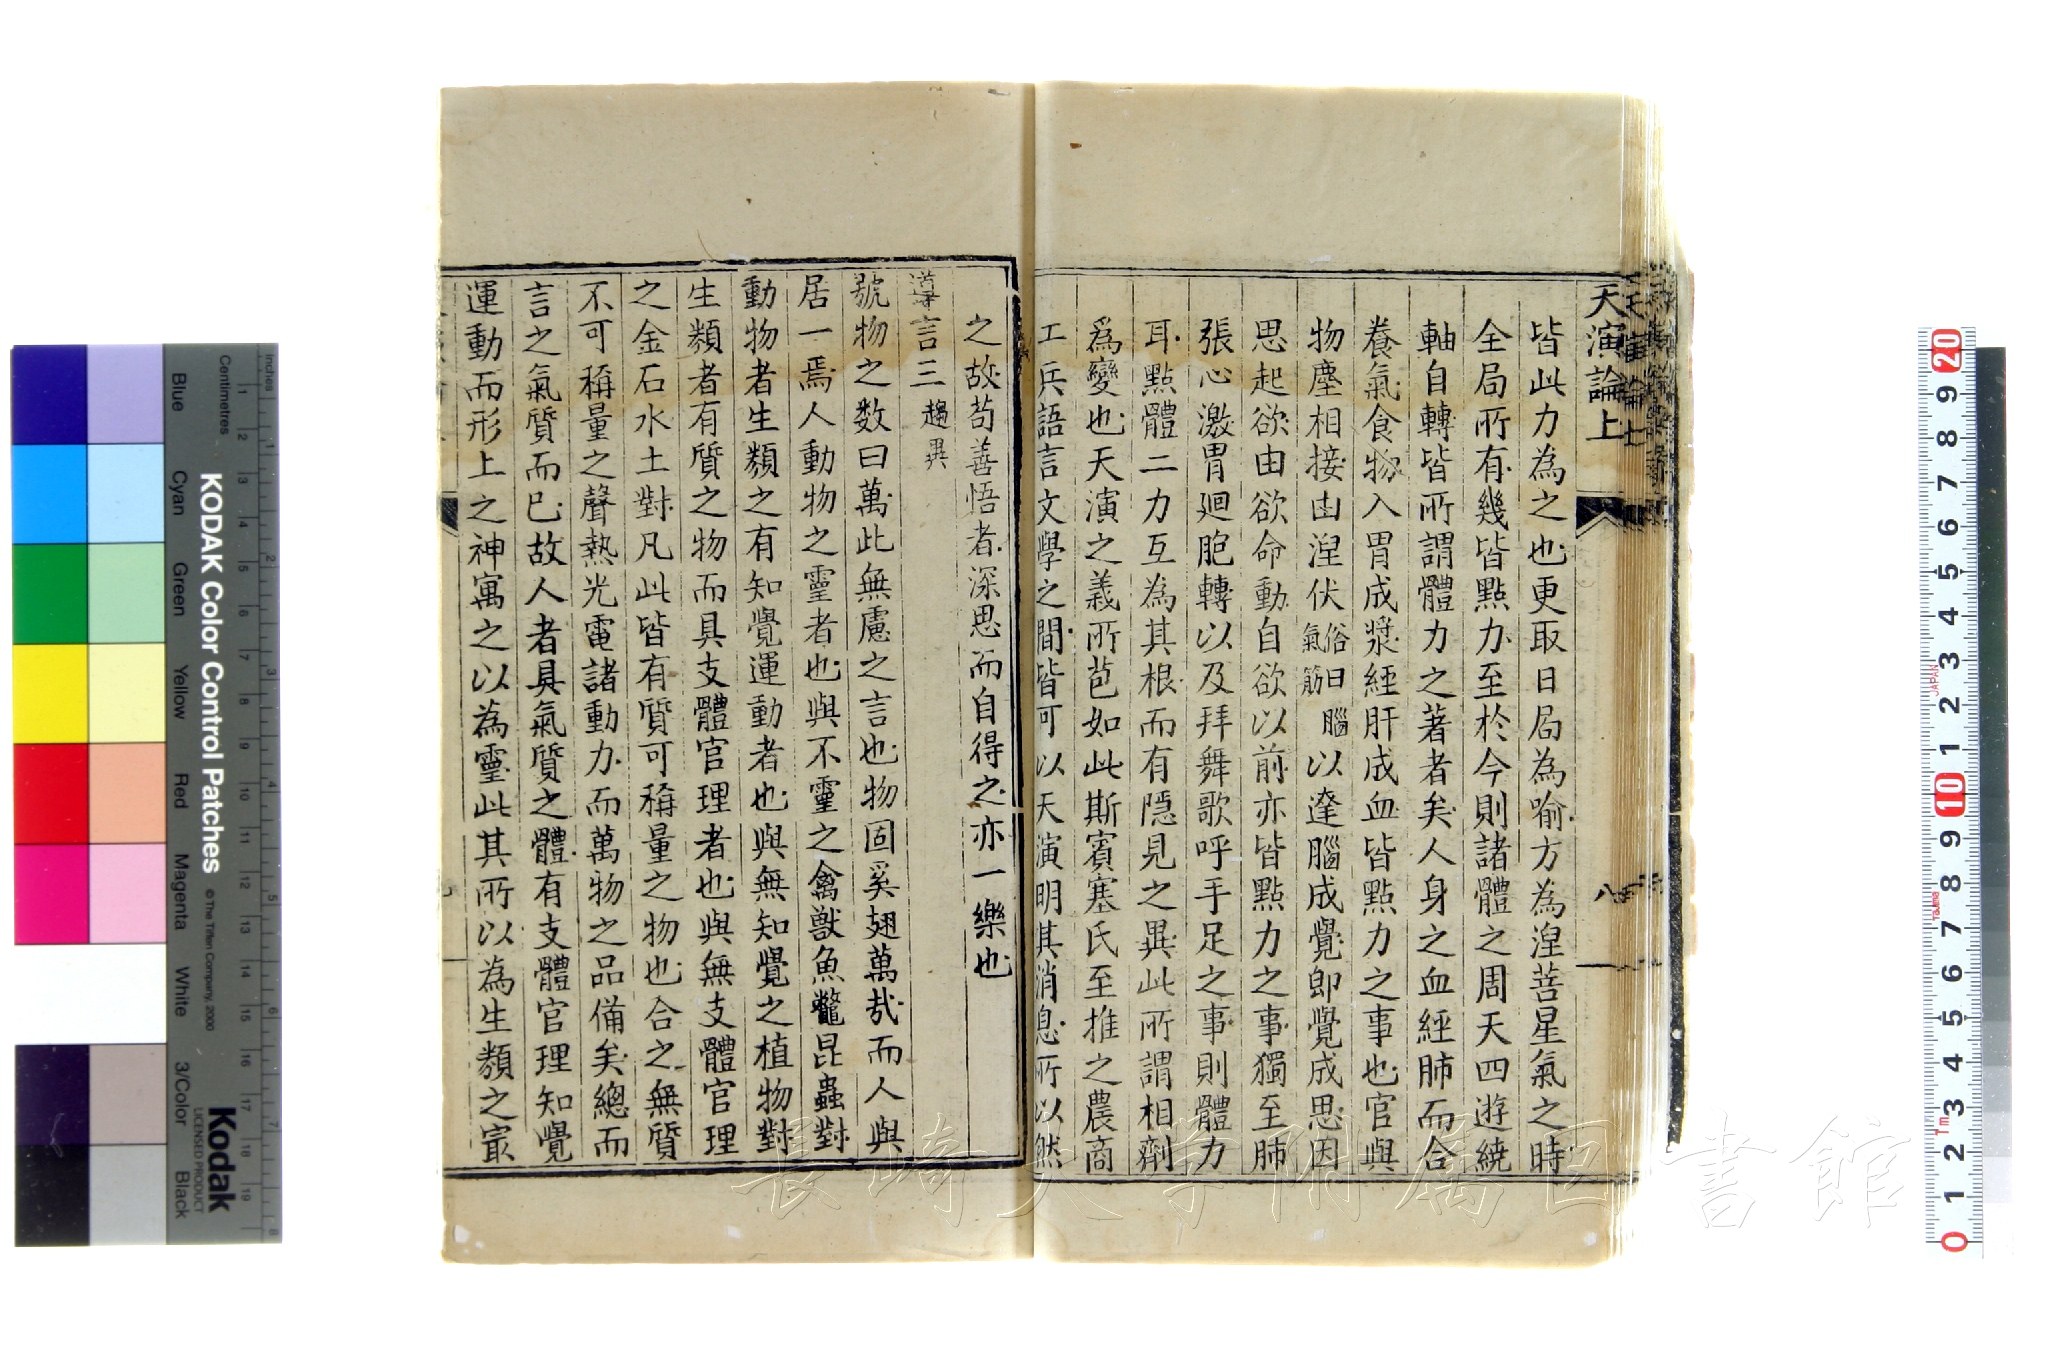 天演論上
八
皆此力為之也更取日局為喻方為湼菩星氣之時
全局所有幾皆點力至於今則諸體之周天四遊繞
軸自轉皆所謂體力之著者矣人身之血經肺而合
養氣食物入胃成漿經肝成血皆點力之事也官與
物塵相接由湼伏俗曰腦氣筋以達腦成覺即覺成思因
思起欲由欲命動自欲以前亦皆點力之事獨至肺
張心激胃迴胞轉以及拜舞歌呼手足之事則體力
耳點體二力互為其根而有隱見之異此所謂相劑
為變也天演之義所苞如此斯賓塞氏至推之農商
工兵語言文學之間皆可以天演明其消息所以然
之故苟善悟者深思而自得之亦一樂也
導言三 趨異
號物之数曰萬此無慮之言也物固奚翅萬哉而人與
居一焉人動物之靈者也與不靈之禽獸魚鼈昆蟲對
動物者生類之有知覺運動者也與無知覺之植物對
生類者有質之物而具支體官理者也與無支體官理
之金石水土對凡此皆有質可稱量之物也合之無質
不可稱量之聲熱光電諸動力而萬物之品備矣總而
言之氣質而已故人者具氣質之體有支體官理知覺
運動而形上之神寓之以為靈此其所以為生類之㝡
KODAK Color Control Patches
© The Tiffen Company, 2000
Kodak
LICENSED PRODUCT
inches
Centimetres
Blue
Cyan
Green
Yellow
Red
Magenta
White
3/Color
Black
JAPAN
Tajima
長崎大学附属図書館